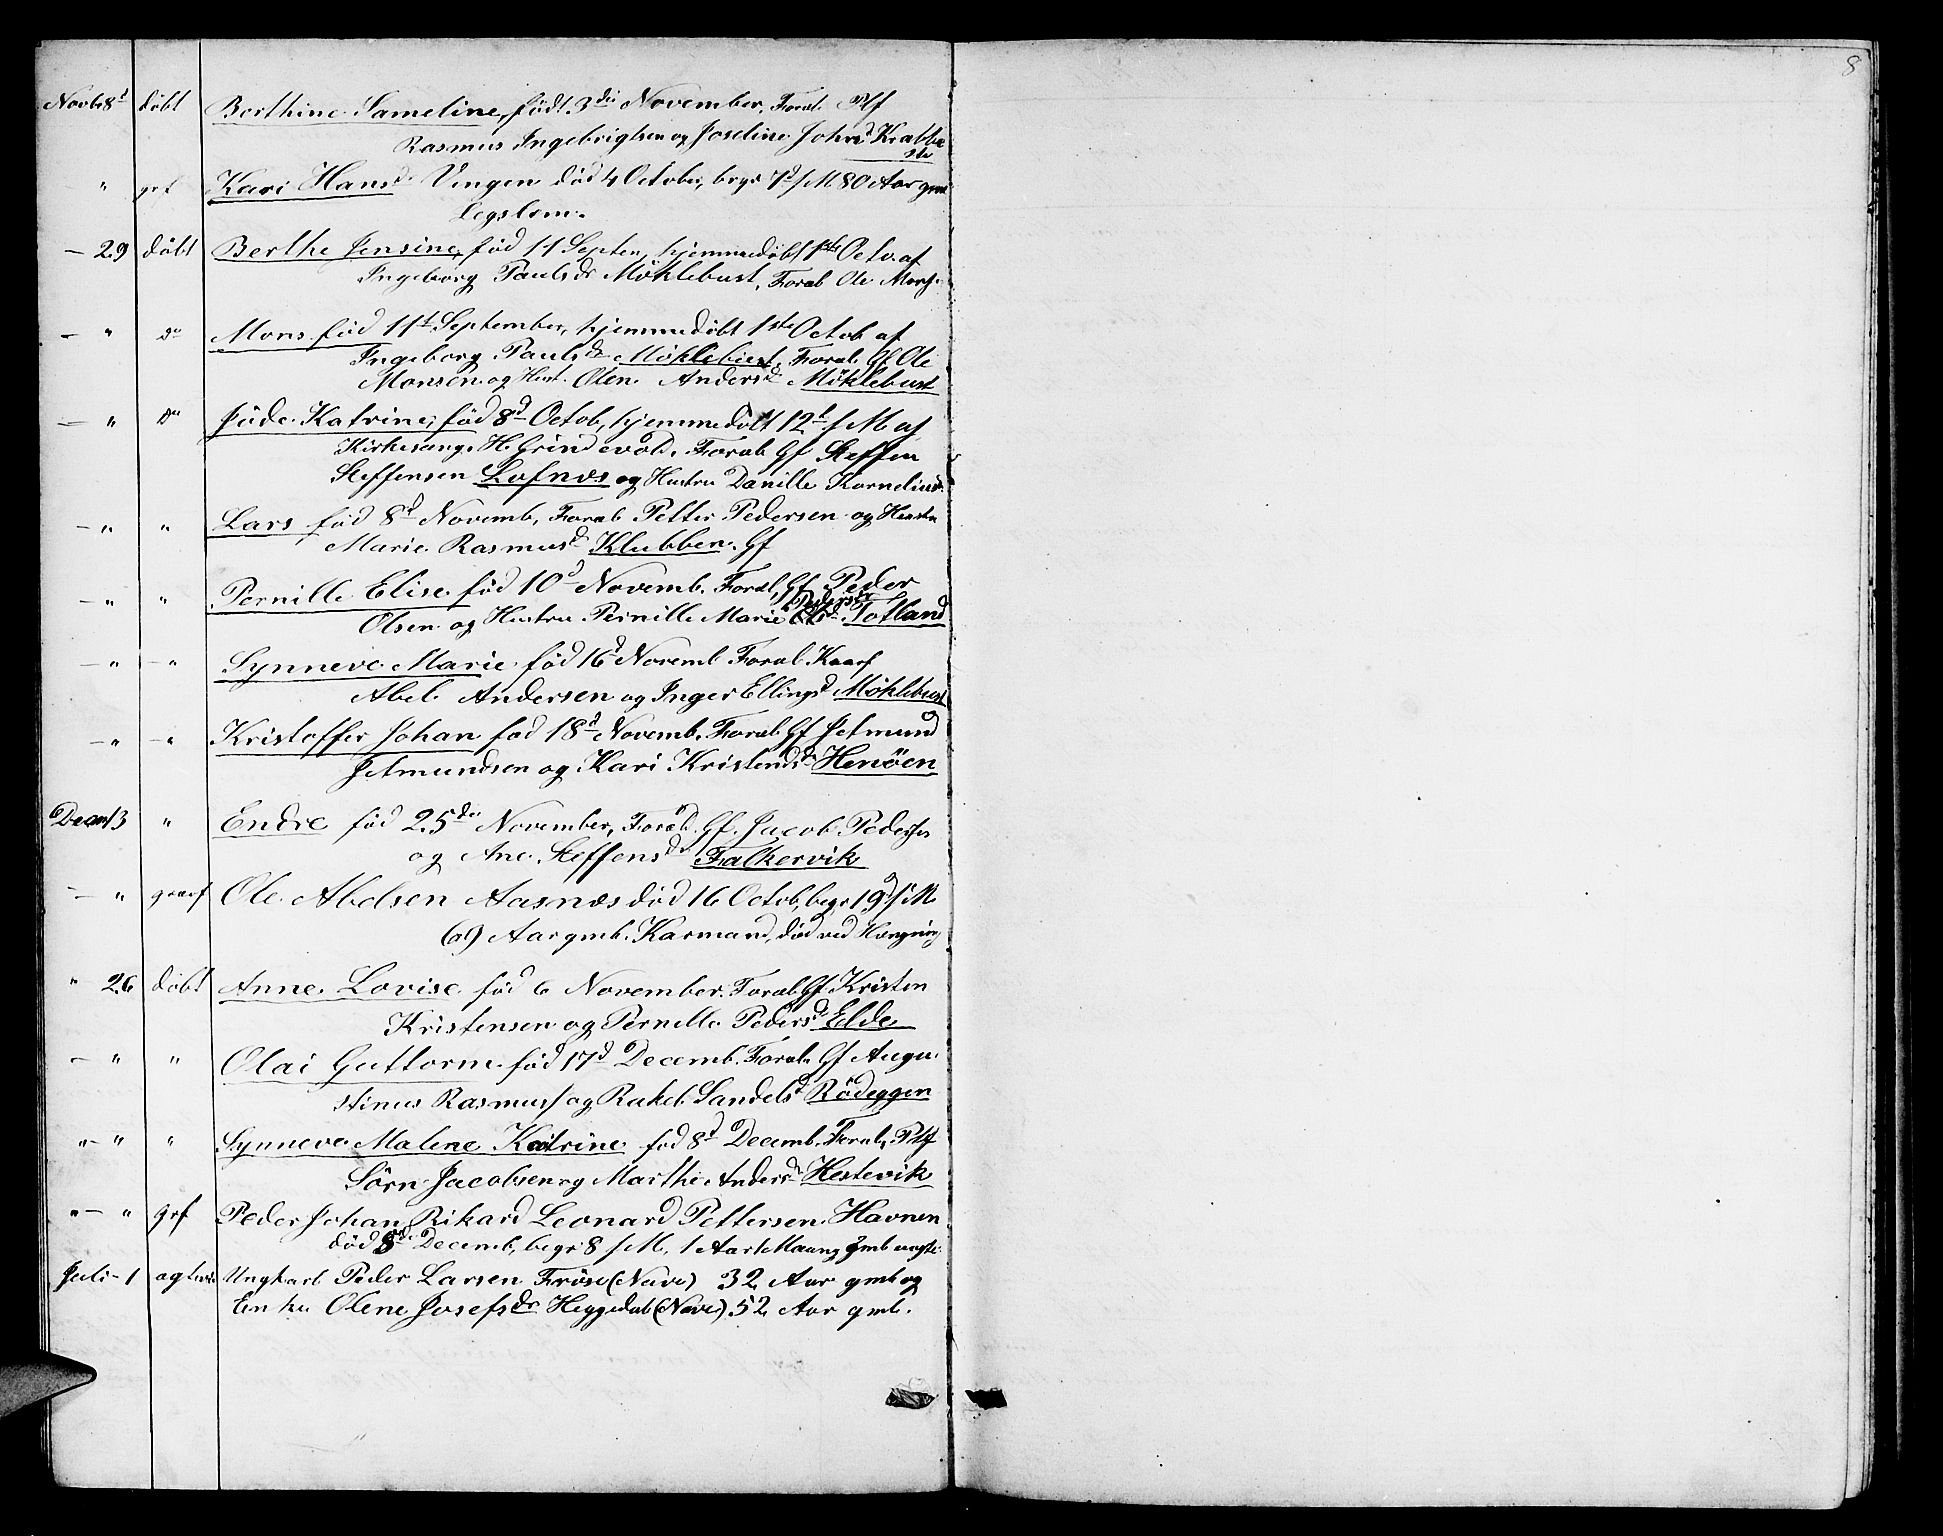 8
Novb 8d döbt Berthine Sameline, födt 3die November. Foræl. Plf
Rasmus Ingebrigtsen og Joseline Johnsd Krabbe
ste
" grf Kari Hansd. Vingen död 4 October, begr 7d s/M 80 Aar gml
Legslem.
— 29 döbt Berthe Jensine, föd 11 Septem, hjemmedöbt 1ste Octo. af
Ingeborg Paulsdr Möklebust, Foræl Ole
— " do Mons föd 11t September, hjemmedöbt 1ste Octob af
Ingeborg Paulsdr Möklebust, Foræl. Gf Ole
Monsen og Hust. Olen. Andersd Möklebust
— " Do Jöde Katrine, föd 8d Octob, hjemmedöbt 12t s/M af
Kirkesang. H. Grindevold. Foræl Gf Steffen
Steffensen Lofnæs og Hustru Danille Kornelius
— " " Lars föd 8d Novemb, Foræl Petter Pedersen og Hustru
Marie Rasmusd Klubben. Gf
— " " Pernille Elise föd 10d Novemb. Foræl, Gf Peder
Pedersdr
Olsen og Hustru Pernille Marie Totland
— " — " Synneve Marie föd 16d Novemb Foræl Kaarf
Abel Andersen og Inger Ellingsd Möklebust
— " — " Kristoffer Johan föd 18d Novemb. Foræl Gf Jetmund
Jetmundsen og Kari Kristensdr Henöen
Decem 13 " Endre föd 25de November, Foræl. Gf. Jacob Peders
og Ane Steffensdr Falkervik
— " graaf Ole Abelsen Aasnæs död 16 Octob, begr 19d s/M
69 Aar gml. Karmand, död ved Hængning
" 26 döbt Anne Lovise föd 6 November. Foræl Gf Kristen
Kristensen og Pernille Pedersd Elde
— " " Olai Guttorm föd 17d Decemb. Foræl. Gf Augu-
stinus Rasmuss og Rakel Sandelsd Rödeggen
" — " " Synneve Malene Katrine föd 8d Decemb. Foræl, Plf
Sörn Jacobsen og Marthe Andersdr Hestevik
" — " grf Peder Johan Rikard Leonard Pettersen Havnen
död Decemb, begr 8 s/M, 1 Aar 1 Maaned gml
Juli — 1 ogteviet Ungkarl Peder Larsen Fröse (Nave) 32 Aar gml og
Enke Olene Josefsdr Heggedal (Nave) 52 Aar gml.